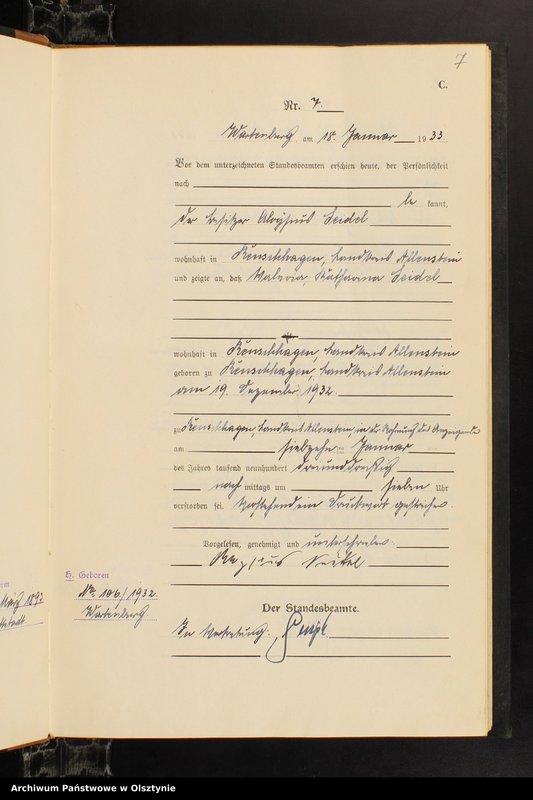 7
C.
Nr. 7.
Wartenburg, am 18. Januar 1933
Vor dem unterzeichneten Standesbeamten erschien heute, der Persönlichkeit
nach
be kannt,
der Besitzer Aloysius Seidel
wohnhaft in Renschhagen, Landkreis Allenstein
und zeigte an, daß Valeria, Katharina Seidel
wohnhaft in Renschhagen, Landkreis Allenstein
geboren zu Renschhagen, Landkreis Allenstein
am 19. Dezember 1932.
zu Renschhagen, Landkreis Allenstein, in der Wohnung des Anzeigenden
am siebzehn ten Januar
des Jahres tausend neunhundert dreiunddreißig
nach mittags um sieben Uhr
verstorben sei. Vorstehend ein Druckwort gestrichen.
Vorgelesen, genehmigt und unterschrieben.
Aloysius Seidel
Der Standesbeamte.
In Vertretung:
H. Geboren
Nr. 106/1932.
Wartenburg
1893
Archiwum Państwowe w Olsztynie